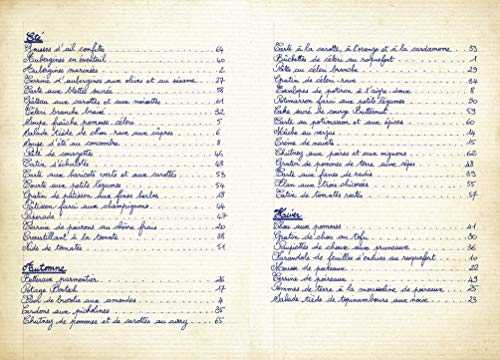 Été
Gousses d'ail confites 64
Aubergines en éventail 40
Aubergines marinées 2
Terrine d'aubergines aux olives et au sésame 27
Tarte aux blettes sucrée 58
Gâteau aux carottes et aux noisettes 61
Céleri branche braisé 32
Soupe fraîche pommes céleri 5
Salade tiède de chou rave aux câpres 6
Soupe d'été au concombre 8
Pâté de courgettes 46
Tatin d'échalote 48
Tarte aux haricots verts et aux carottes 53
Tourte aux petits légumes 54
Gratin de pâtisson aux fines herbes
Pâtisson farci aux champignons
Piperade 47
Terrine de poivrons au chèvre frais 20
Croustillant à la tomate
Nids de tomates 51
Automne
Patteraux parmentier 26
Potage Portash 17
Flan de brocolis aux amandes 4
Cardons aux picholines 35
Chutney de pommes et de carottes au curry 65
Tarte à la carotte, à l'orange et à la cardamome 59
Bûchettes de céleri au roquefort 1
Pâté au céleri branche 29
Gratin de céleri-rave 34
Enveloppe de potiron à l'aigre-doux 8
Potimarron farci aux petits légumes 30
Cake sucré de courge Butternut 59
Tarte au potimarron et aux épices 60
Mâche au verjus 14
Crème de navets 15
Chutney aux poires et aux oignons 62
Gratin de pommes de terre aux cèpes 48
Tarte aux fanes de radis
Flan aux trois
Tatin de tomates vertes 57
Hiver
Chou aux pommes 41
Gratin de chou au tofu
Paupiettes de choux aux pruneaux 36
Farandole de feuilles d'endives au roquefort 10
Mousse de panais 22
Terrine de poireaux 49
Pommes de terre à la mousseline de poireaux 25
Salade tiède de topinambours aux noix 23